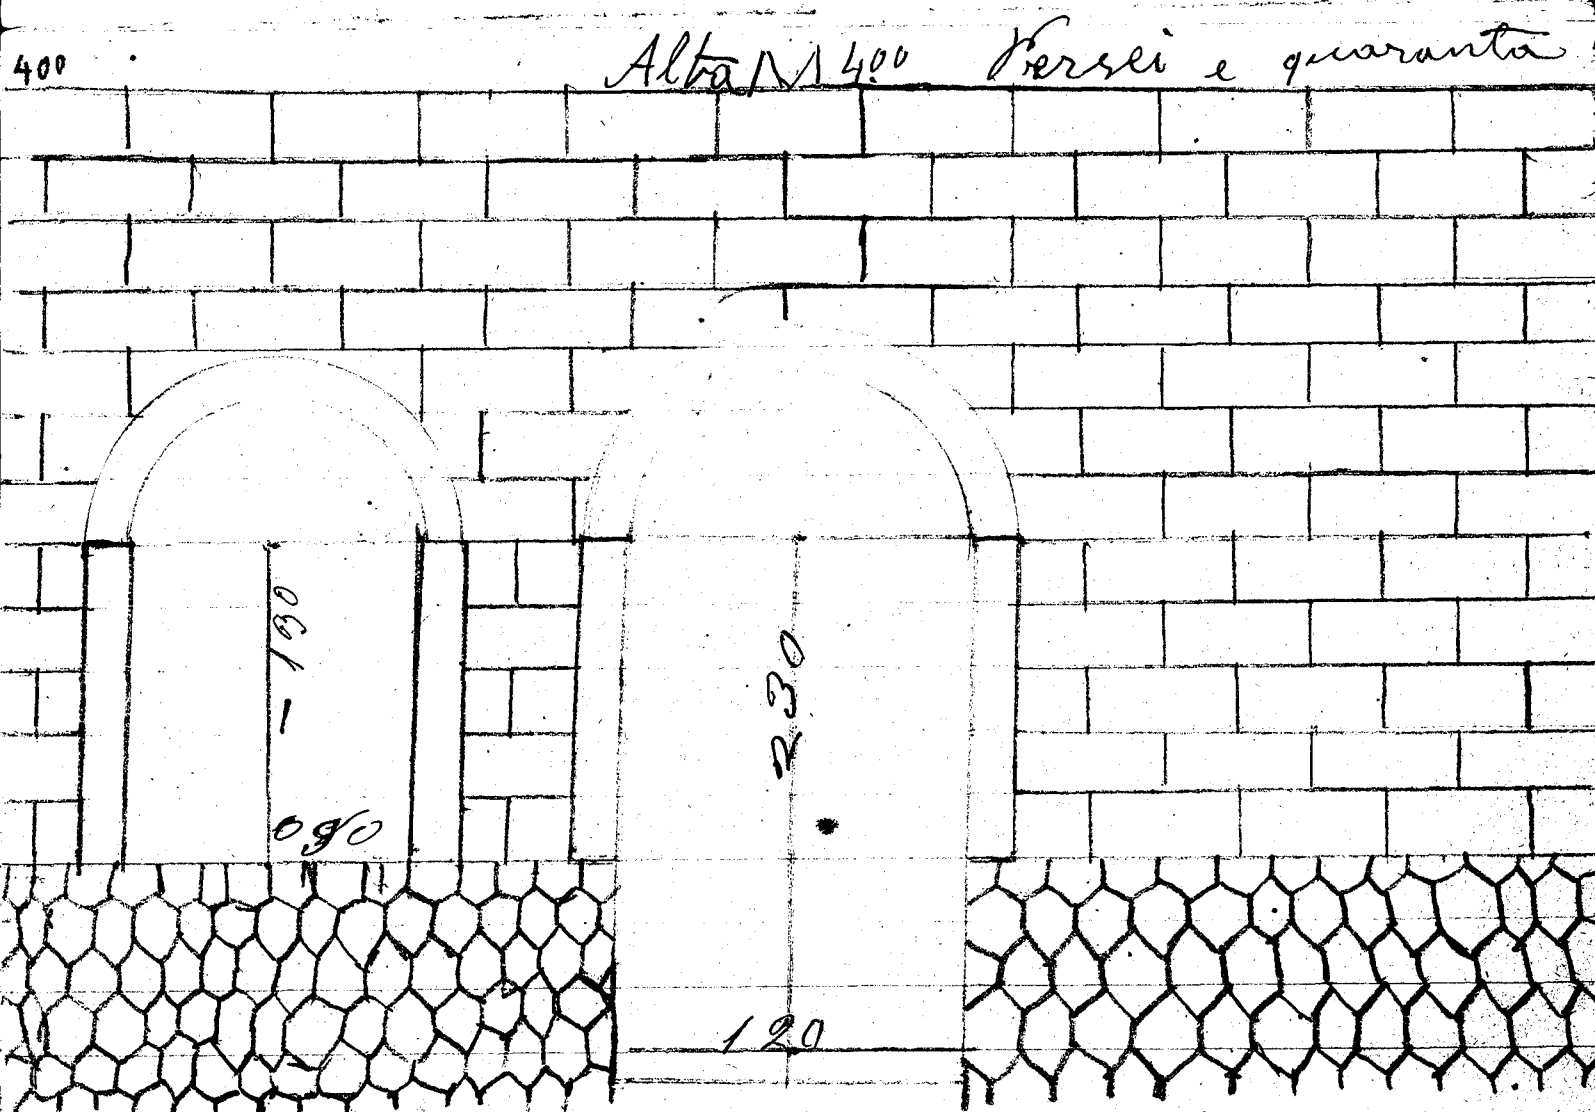 400
Alta M 400 Versei e quaranta
130
090
230
120